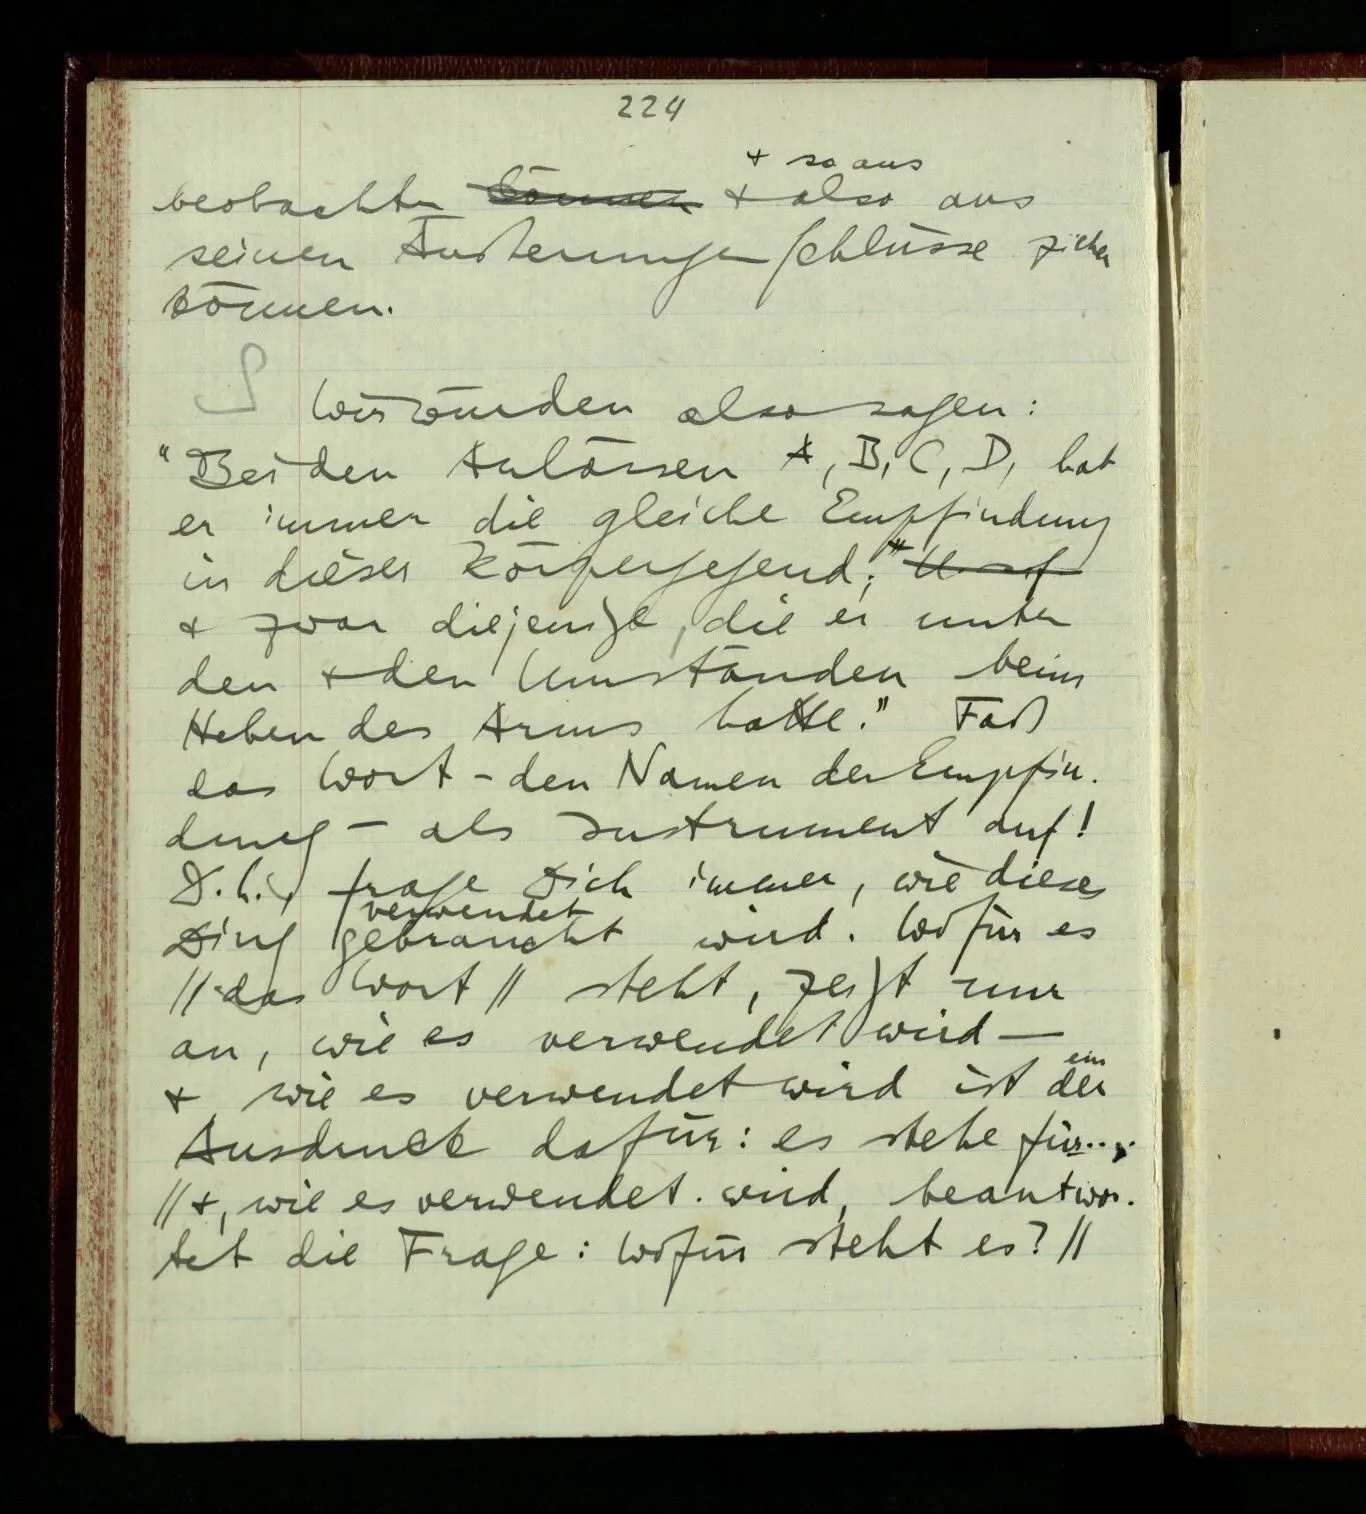 224
+ so aus
beobachten können + also aus
seinen Äußerungen Schlüsse ziehen
können.
S Wir würden also sagen:
"Bei den Anlässen A, B, C, D, hat
er immer die gleiche Empfindung
in dieser Körpergegend;"
+ zwar diejenige, die er unter
den + den Umständen beim
Heben des Arms hatte." Faß
das Wort – den Namen der Empfin-
dung – als Instrument auf!
D.h., frage Dich immer, wie dieses
verwendet
Ding gebraucht wird. Wofür es
// das Wort // steht, zeigt nur
an, wie es verwendet wird –
ein
+ wie es verwendet wird ist der
Ausdruck dafür: es stehe für....
// +, wie es verwendet wird, beantwor-
tet die Frage: Wofür steht es? //